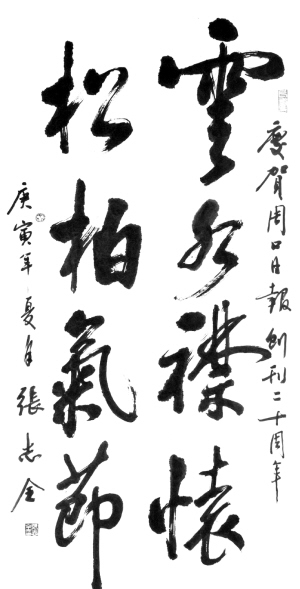 慶賀周口日報創刊二十周年
雲水襟懷
松柏氣節
庚寅年夏月 張志全